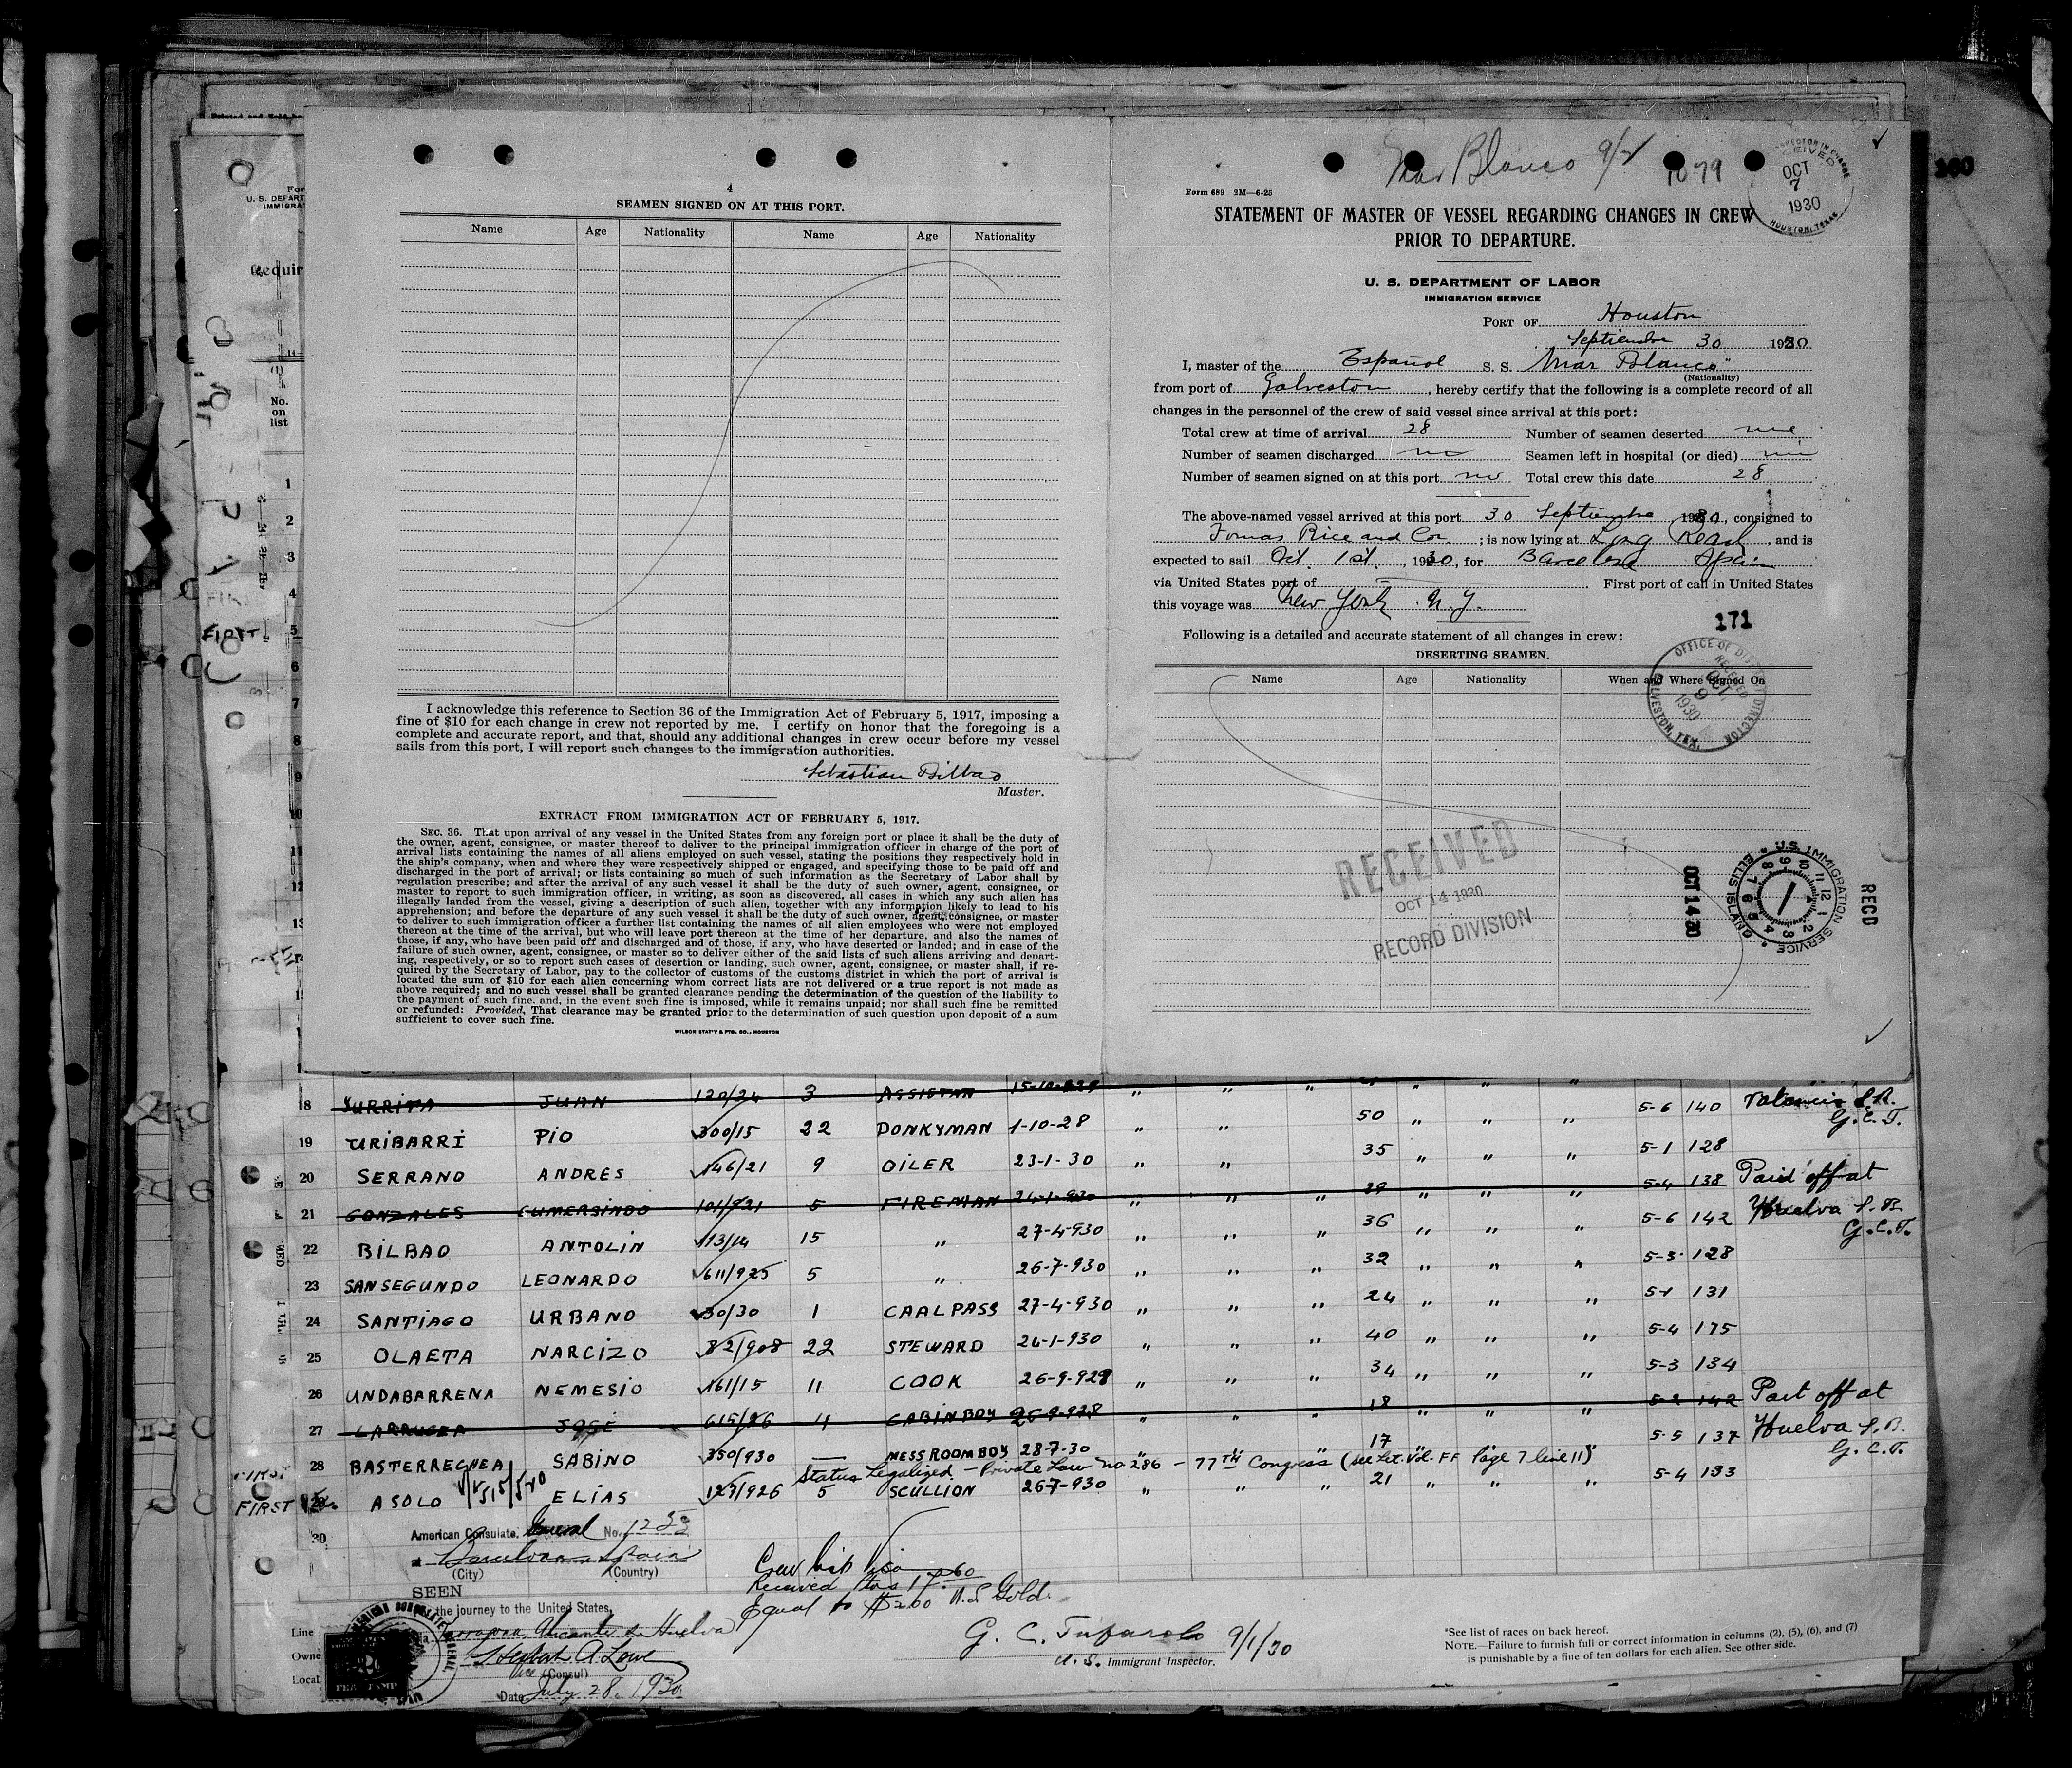 4
SEAMEN SIGNED ON AT THIS PORT.
Name Age Nationality Name Age Nationality
I acknowledge this reference to Section 36 of the Immigration Act of February 5, 1917, imposing a
fine of $10 for each change in crew not reported by me. I certify on honor that the foregoing is a
complete and accurate report, and that, should any additional changes in crew occur before my vessel
sails from this port, I will report such changes to the immigration authorities.
Sebastian Bilbao
Master.
EXTRACT FROM IMMIGRATION ACT OF FEBRUARY 5, 1917.
SEC. 36. That upon arrival of any vessel in the United States from any foreign port or place it shall be the duty of
the owner, agent, consignee, or master thereof to deliver to the principal immigration officer in charge of the port of
arrival lists containing the names of all aliens employed on such vessel, stating the positions they respectively hold in
the ship's company, when and where they were respectively shipped or engaged, and specifying those to be paid off and
discharged in the port of arrival; or lists containing so much of such information as the Secretary of Labor shall by
regulation prescribe; and after the arrival of any such vessel it shall be the duty of such owner, agent, consignee, or
master to report to such immigration officer, in writing, as soon as discovered, all cases in which any such alien has
illegally landed from the vessel, giving a description of such alien, together with any information likely to lead to his
apprehension; and before the departure of any such vessel it shall be the duty of such owner, agent, consignee, or master
to deliver to such immigration officer a further list containing the names of all alien employees who were not employed
thereon at the time of the arrival, but who will leave port thereon at the time of her departure, and also the names of
those, if any, who have been paid off and discharged and of those, if any, who have deserted or landed; and in case of the
failure of such owner, agent, consignee, or master so to deliver either of the said lists of such aliens arriving and depart-
ing, respectively, or so to report such cases of desertion or landing, such owner, agent, consignee, or master shall, if re-
quired by the Secretary of Labor, pay to the collector of customs of the customs district in which the port of arrival is
located the sum of $10 for each alien concerning whom correct lists are not delivered or a true report is not made as
above required; and no such vessel shall be granted clearance pending the determination of the question of the liability to
the payment of such fine, and, in the event such fine is imposed, while it remains unpaid; nor shall such fine be remitted
or refunded: Provided, That clearance may be granted prior to the determination of such question upon deposit of a sum
sufficient to cover such fine.
WILSON STAT'Y & PTG. CO., HOUSTON
Mar Blanco 9/1 1079
INSPECTOR IN CHARGE RECEIVED OCT 7 1930 HOUSTON, TEXAS
Form 689 2M—6-25
STATEMENT OF MASTER OF VESSEL REGARDING CHANGES IN CREW
PRIOR TO DEPARTURE.
U. S. DEPARTMENT OF LABOR
IMMIGRATION SERVICE
PORT OF Houston
Septiembre 30 1930
I, master of the Español S. S. Mar Blanco"
(Nationality)
from port of Galveston, hereby certify that the following is a complete record of all
changes in the personnel of the crew of said vessel since arrival at this port:
Total crew at time of arrival 28 Number of seamen deserted
Number of seamen discharged no Seamen left in hospital (or died)
Number of seamen signed on at this port no Total crew this date 28
The above-named vessel arrived at this port 30 Septiembre 1930, consigned to
Tomas Rice and Co ; is now lying at Long Reach, and is
expected to sail Oct. 1st., 1930, for Barcelona Spain
via United States port of — First port of call in United States
this voyage was New York N.Y.
171
Following is a detailed and accurate statement of all changes in crew:
DESERTING SEAMEN.
Name Age Nationality When and Where Signed On
OFFICE OF DISTRICT DIRECTOR RECEIVED OCT 9 1930 GALVESTON, TEX.
RECEIVED
OCT 14 1930
RECORD DIVISION
RECD
U.S. IMMIGRATION SERVICE ELLIS ISLAND
OCT 14 30
18 URRITA JUAN 120/24 3 ASSISTAN 15-10-929 " " " " " "
19 URIBARRI PIO 300/15 22 DONKYMAN 1-10-28 " " 50 " " " 5-6 140 Valencia S.B. G.C.T.
20 SERRANO ANDRES 146/21 9 OILER 23-1-30 " " 35 " " " 5-1 128
21 GONZALES GUMERSINDO 101/921 5 FIREMAN 24-1-930 " " " 29 " " " 5-4 138 Paid off at
22 BILBAO ANTOLIN 113/14 15 " 27-4-930 " " " 36 " " " 5-6 142 Huelva S.B. G.C.T.
23 SANSEGUNDO LEONARDO 611/925 5 " 26-7-930 " " " 32 " " " 5-3 128
24 SANTIAGO URBANO 30/30 1 CAALPASS 27-4-930 " " " 24 " " " 5-1 131
25 OLAETA NARCIZO 82/908 22 STEWARD 24-1-930 " " " 40 " " " 5-4 175
26 UNDABARRENA NEMESIO 161/15 11 COOK 26-9-929 " " " 34 " " " 5-3 134
27 LARRUCEA JOSÉ 615/26 4 CABINBOY 26-9-928 " " " 18 " " " 5-2 142 Paid off at
28 BASTERRECHEA SABINO 350/930 — MESS ROOM BOY 28-7-30 " " " 17 " " " 5-5 137 Huelva S.B. G.C.T.
Status Legalized — Private Law no 286 — 77TH Congress (see Let. Vol. FF Page 7 line 11)
FIRST
FIRST 29 ASOLO ELIAS 127/926 5 SCULLION 26-7-930 " " " 21 " " " 5-4 133
30
American Consulate General No. 1233
(City) (Country)
SEEN
the journey to the United States,
Tarragona Alicante & Huelva
Vice (Consul)
Date July 28, 1930
Line
Owne
Local
Crew list Visa
Received Ptas 17.60
Equal to $2.00 U.S. Gold.
G. C. Tufarolo 9/1/30
U. S. Immigrant Inspector.
*See list of races on back hereof.
NOTE.—Failure to furnish full or correct information in columns (2), (5), (6), and (7)
is punishable by a fine of ten dollars for each alien. See other side.